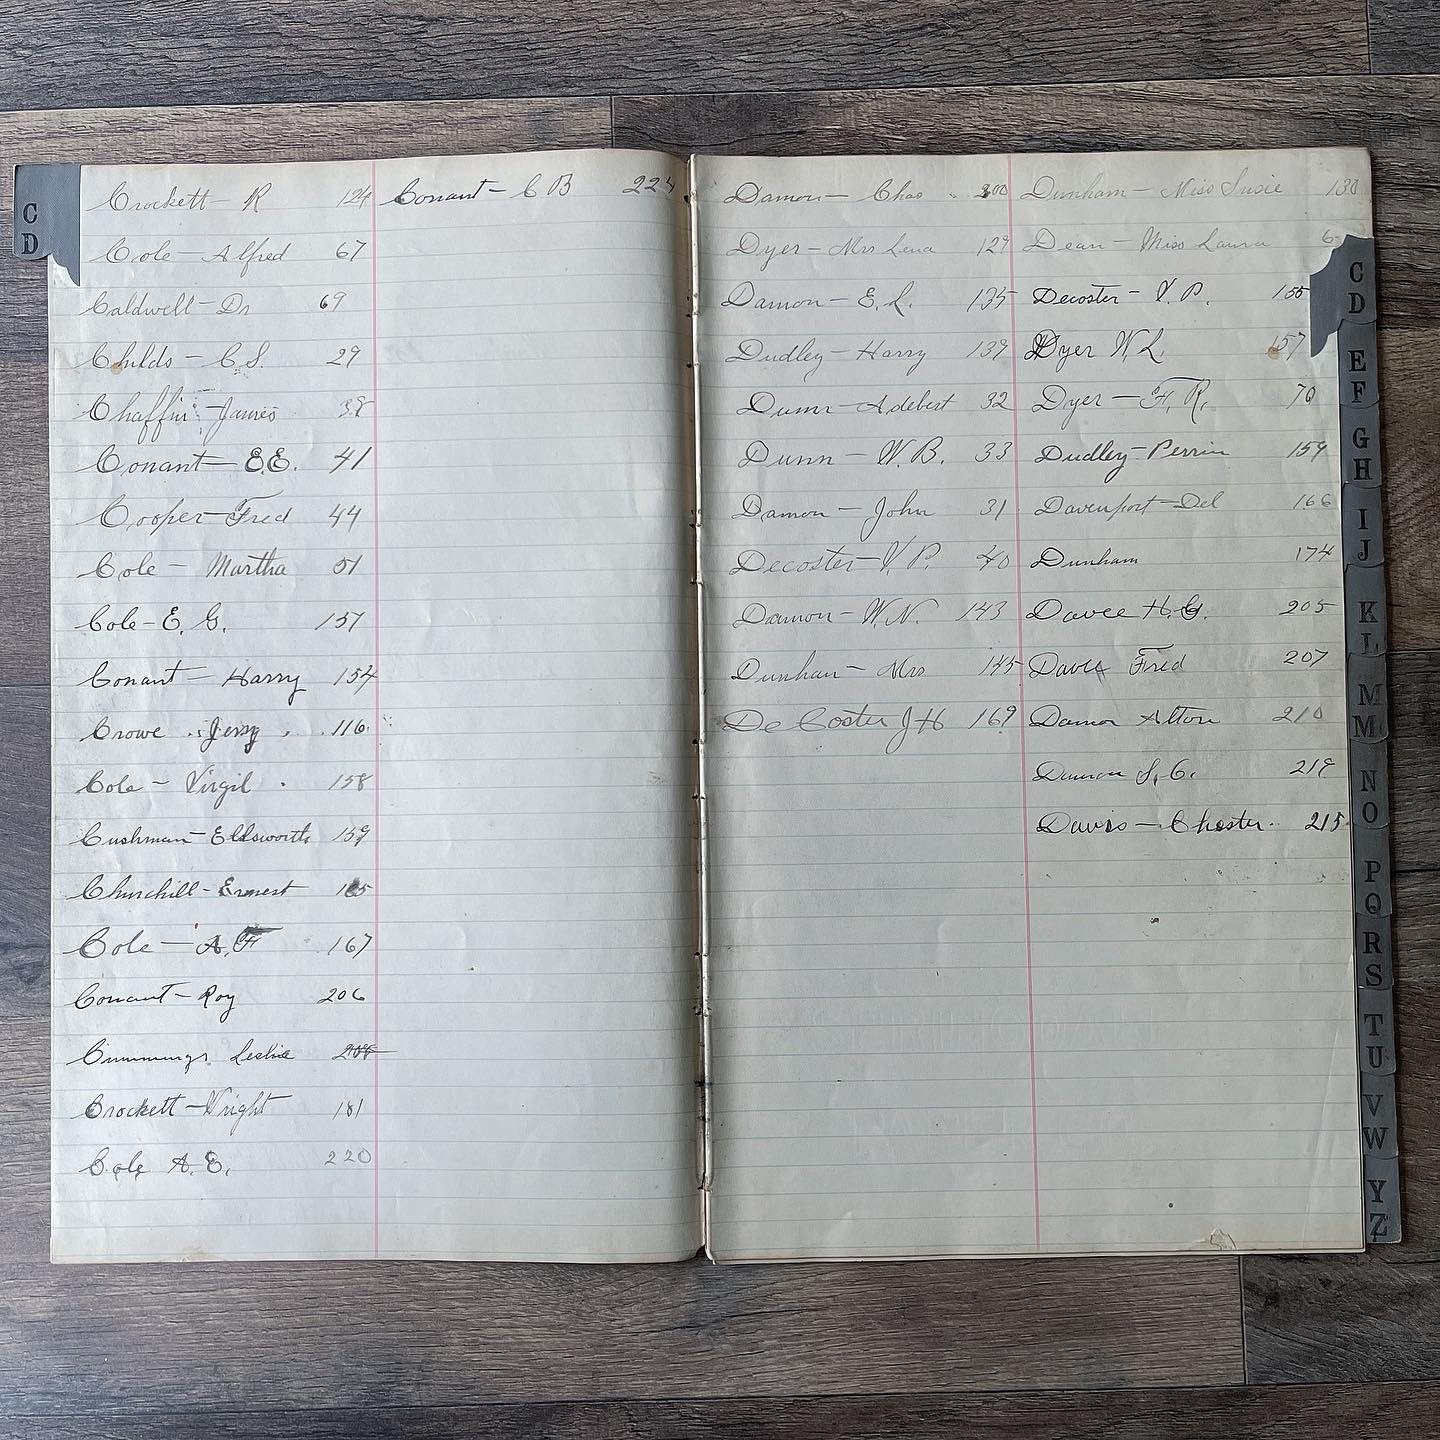 C
D
Crockett - R 124
Cole - Alfred 67
Caldwell - Dr 69
Childs - C.S. 29
Chaffin - James 38
Conant - E.E. 41
Cooper - Fred 44
Cole - Martha 51
Cole - E. G. 157
Conant - Harry 154
Crowe Jerry 116
Cole - Virgil 158
Cushman - Elldsworth 159
Churchill - Ernest
Cole - A.F 167
Conant - Roy 206
Cummings Leslie
Crockett - Wright 181
Cole A. E. 220
Conant - C B 224
Damon - Chas 200
Dyer - Mrs Lena 129
Damon - E. L. 135
Dudley - Harry 139
Dunn - Adelbert 32
Dunn - W. B. 33
Damon - John 31
Decoster - V. P. 40
Damon - W. N. 143
Dunham - Mrs 145
De Coster J H 169
Dunham - Miss Susie 130
Dean - Miss Laura
Decoster - V. P. 155
Dyer W L 157
Dyer - F. R. 70
Dudley - Perrin 159
Davenport - Del 166
Dunham 174
Davee H. G. 205
Davee Fred 207
Damon Alton 210
Damon S. G. 219
Davis - Chester 215
C
D
E
F
G
H
I
J
K
L
M
M
N
O
P
Q
R
S
T
U
V
W
Y
Z